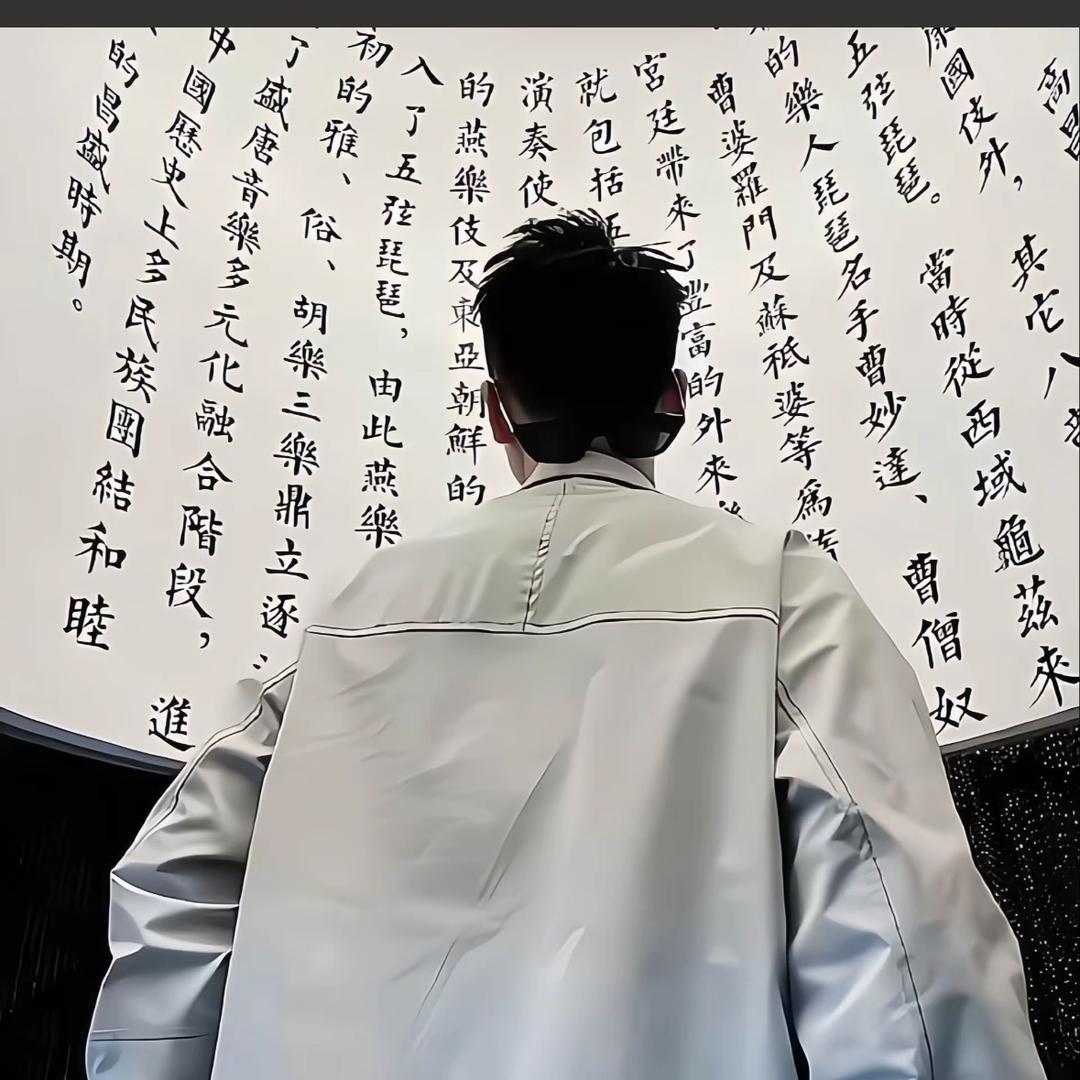 高昌
康國伎外，其它八
五弦琵琶。當時從西域龜茲來
的樂人琵琶名手曹妙達、曹僧奴
曹婆羅門及蘇祗婆等爲隋
宮廷帶來了豐富的外來
就包括五
演奏使
的燕樂伎及東亞朝鮮的
入了五弦琵琶，由此燕樂
初的雅、俗、胡樂三樂鼎立逐
了盛唐音樂多元化融合階段，進
中國歷史上多民族團結和睦
的昌盛時期。